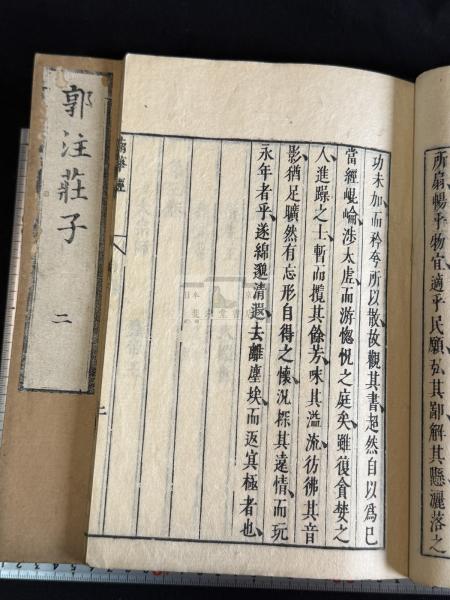 所扇暢乎物宜適乎民願弘其鄙解其懸灑落之
功未加而矜夸所以散故觀其書超然自以爲已
當經崐崘涉太虛而游惚怳之庭矣雖復貪婪之
人進躁之士暫而攬其餘芳味其溢流彷彿其音
影猶足曠然有忘形自得之懷況探其遠情而玩
永年者乎遂綿邈清遐去離塵埃而返冥極者也
二
郭注莊子
二